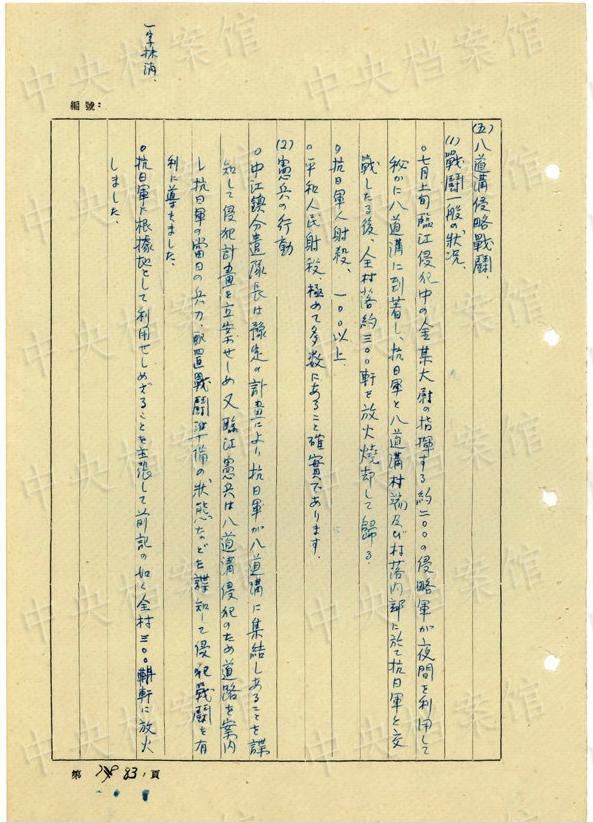 一字抹消.
編號:
(五)八道溝侵略戰鬪.
(1)戰鬪一般の狀况.
○七月上旬臨江侵犯中の金某大尉の指揮する約二〇〇の侵略軍が夜間を利用して
秘かに八道溝に到着し、抗日軍と八道溝村端及び村落内部に於て抗日軍と交
戰したる後、全村落約三〇〇軒を放火燒却して歸る.
○抗日軍人射殺、一〇〇以上.
○平和人民射殺、極めて多数にあること確實であります.
(2)憲兵の行動
○中江鎮分遣隊長は豫定の計畫により抗日軍が八道溝に集結しあることを諜
知して侵犯計畫を立案させしめ又臨江憲兵は八道溝侵犯のため道路を案内
し抗日軍の當日の兵力、配置戰鬪準備の狀態などを諜知して侵犯戰鬪を有
利に導きました.
○抗日軍に根據地として利用せしめざることを主張して前記の如く全村三〇〇軒に放火
しました.
第 83 頁
中央档案馆